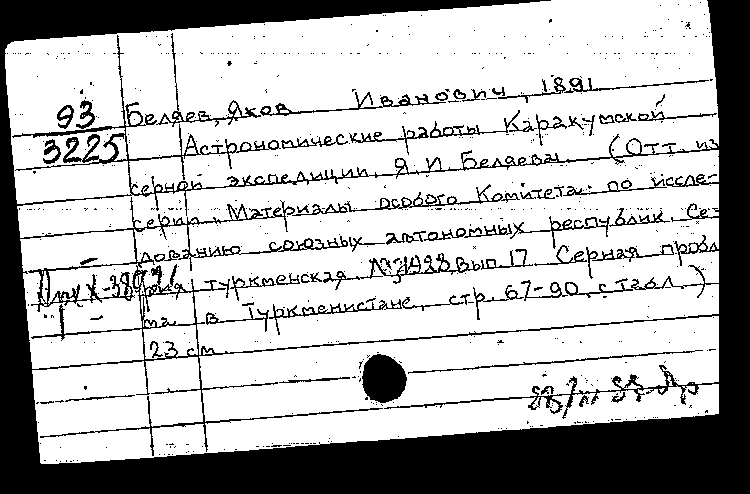 93
3225
Беляев, Яков Иванович, 1891
Астрономические работы Каракумской
серной экспедиции. Я. И. Беляева. (Отт. из
серии „Материалы особого Комитета по иссле-
дованию союзных автономных республик. Се-
рия туркменская 1928 Вып. 17 Серная пробл
ма в Туркменистане, стр. 67-90. с табл.)
23 см.